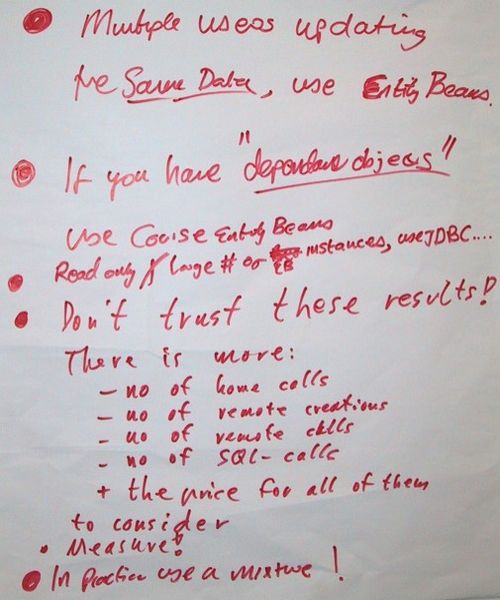 Multiple users updating
the Same Data, use Entity Beans.
If you have "dependent objects"
use Coarse Entity Beans
Read only / large # of EB instances, use JDBC....
Don't trust these results!
There is more:
- no of home calls
- no of remote creations
- no of remote calls
- no of SQL-calls
+ the price for all of them
to consider
• Measure!
In Practice use a mixture!